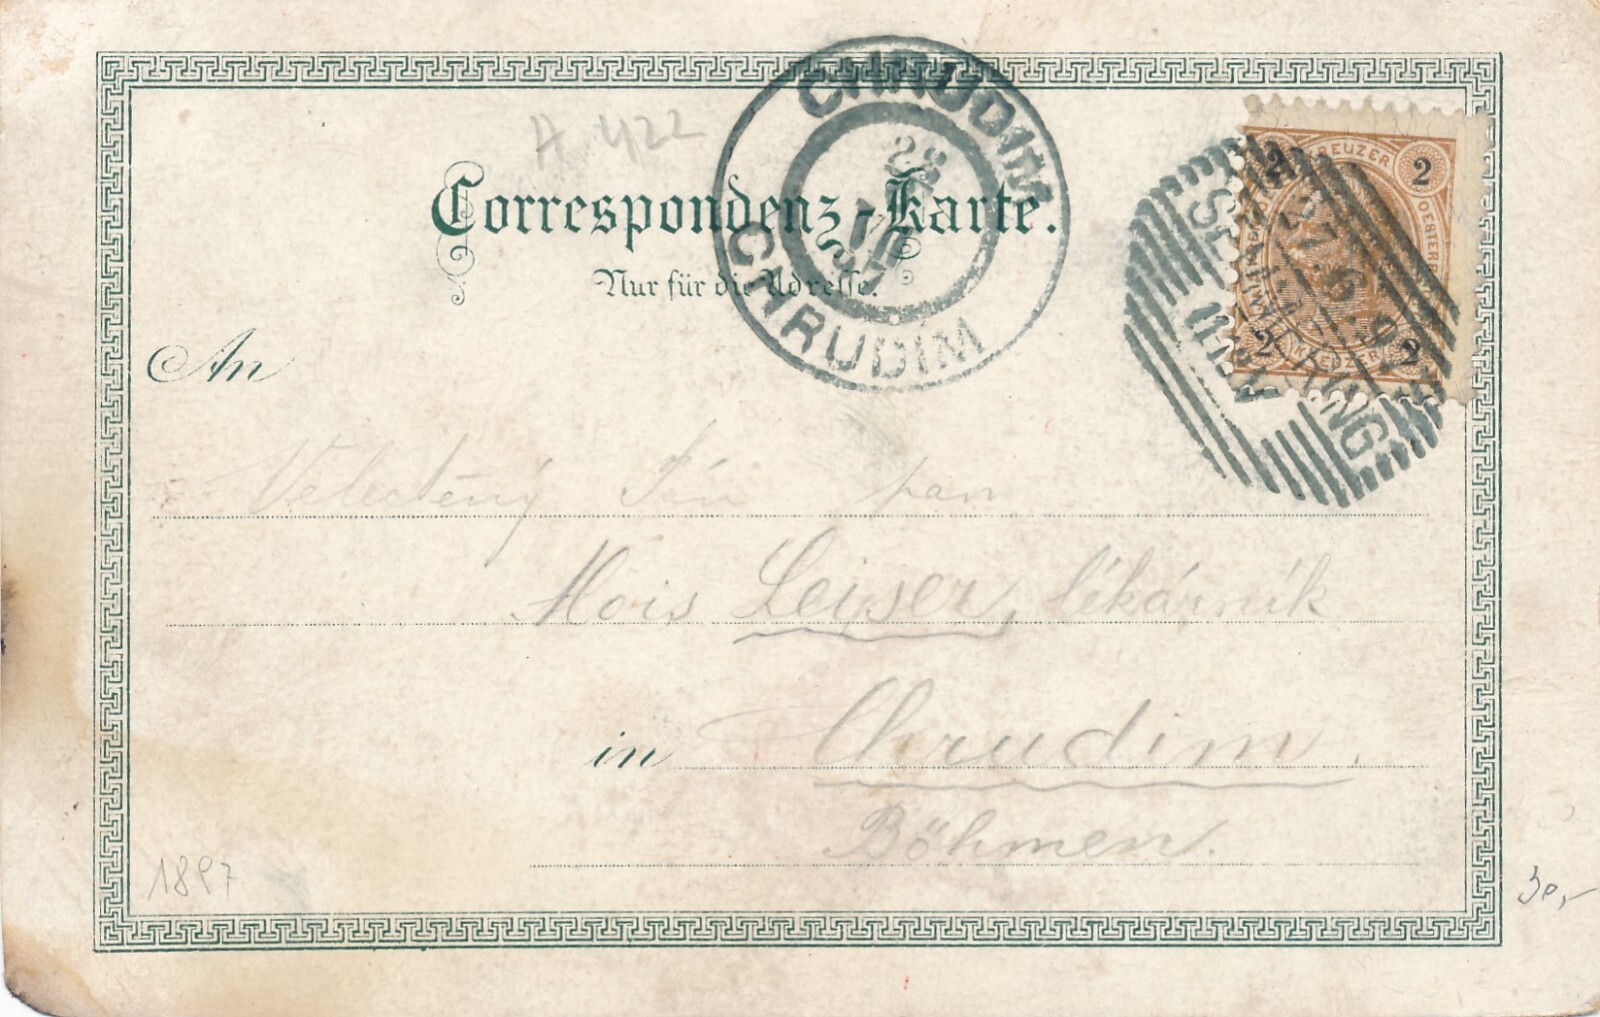 A 422
CHRUDIM
28
VI
97
CHRUDIM
Correspondenz-Karte.
Nur für die Adresse.
KREUZER
2 2
2 2
KREUZER
27.6.97
An
pan
Alois Leiser, lékárník
in Chrudim.
Böhmen.
1897
30,-